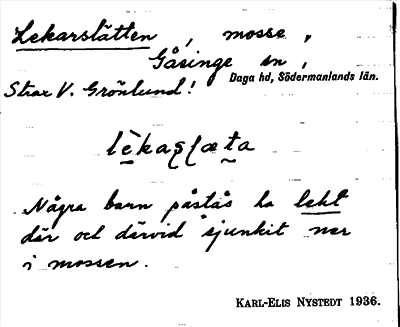 Lekarslätten, mosse,
Gåsinge sn,
Daga hd, Södermanlands län.
Strax V. Grönlund!
Några barn påstås ha lekt
där och därvid sjunkit ner
i mossen.
KARL-ELIS NYSTEDT 1936.